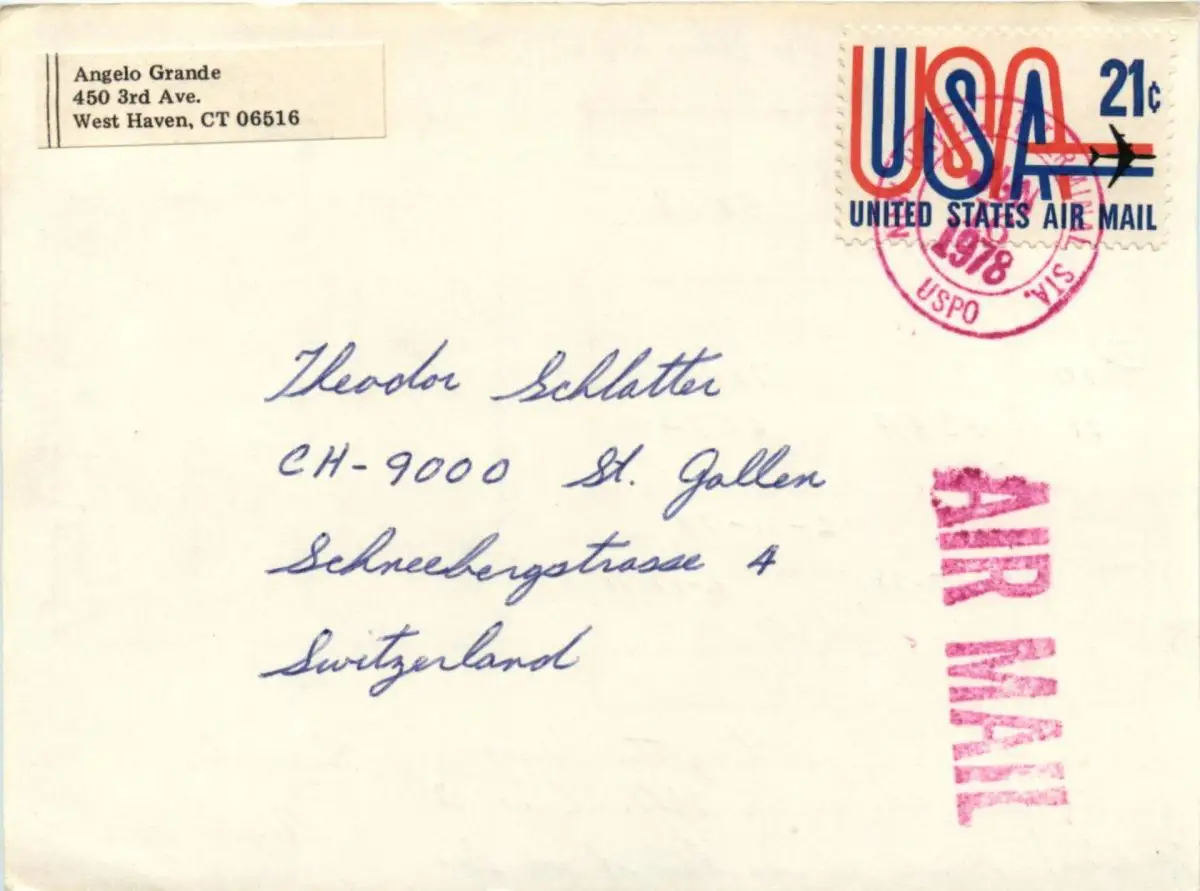 Angelo Grande
450 3rd Ave.
West Haven, CT 06516
USA 21¢
UNITED STATES AIR MAIL
TERMINAL STA.
1978
USPO
Theodor Schlatter
CH-9000 St. Gallen
Schneebergstrasse 4
Switzerland
AIR MAIL